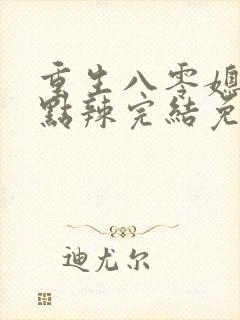 重生八零媳
點辣完結免
迪尤尔